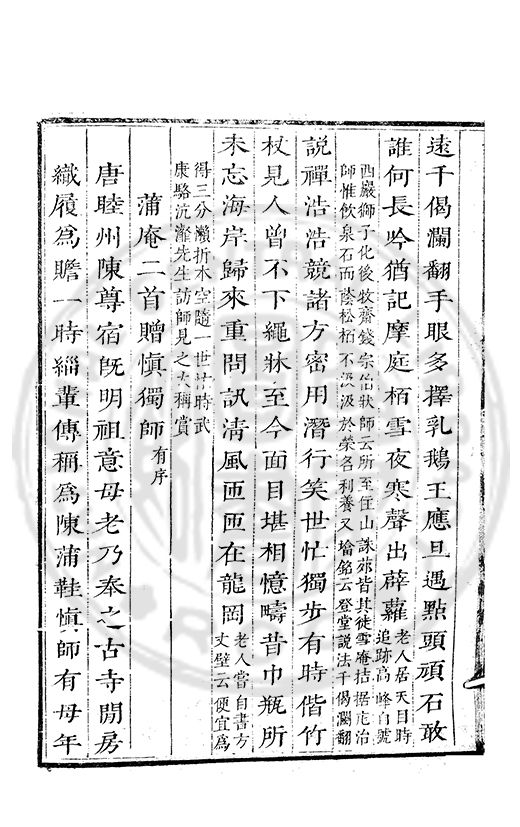 遠千偈瀾翻手眼多擇乳鵝王應旦遇點頭頑石敢
誰何長吟猶記摩庭栢雪夜寒聲出薜蘿老人居天目時追跡高峰自號
西巖獅子化後牧齋錢宗伯狀師云所至住山誅茆皆其徒雪庵拮据庀治
師惟飲泉石而蔭松栢不汲汲於榮名利養又塔銘云登堂說法千偈瀾翻
說禪浩浩競諸方密用潛行笑世忙獨步有時偕竹
杖見人曾不下繩牀至今面目堪相憶疇昔巾瓶所
未忘海岸歸來重問訊清風匝匝在龍岡老人嘗自書方丈壁云便宜爲
得三分瀨折本空隨一世 時武
康駱沆瀣先生訪師見之大稱賞
蒲庵二首贈慎獨師有序
唐睦州陳尊宿旣明祖意母老乃奉之古寺閒房
織履爲贍一時緇輩傳稱爲陳蒲鞋愼師有母年